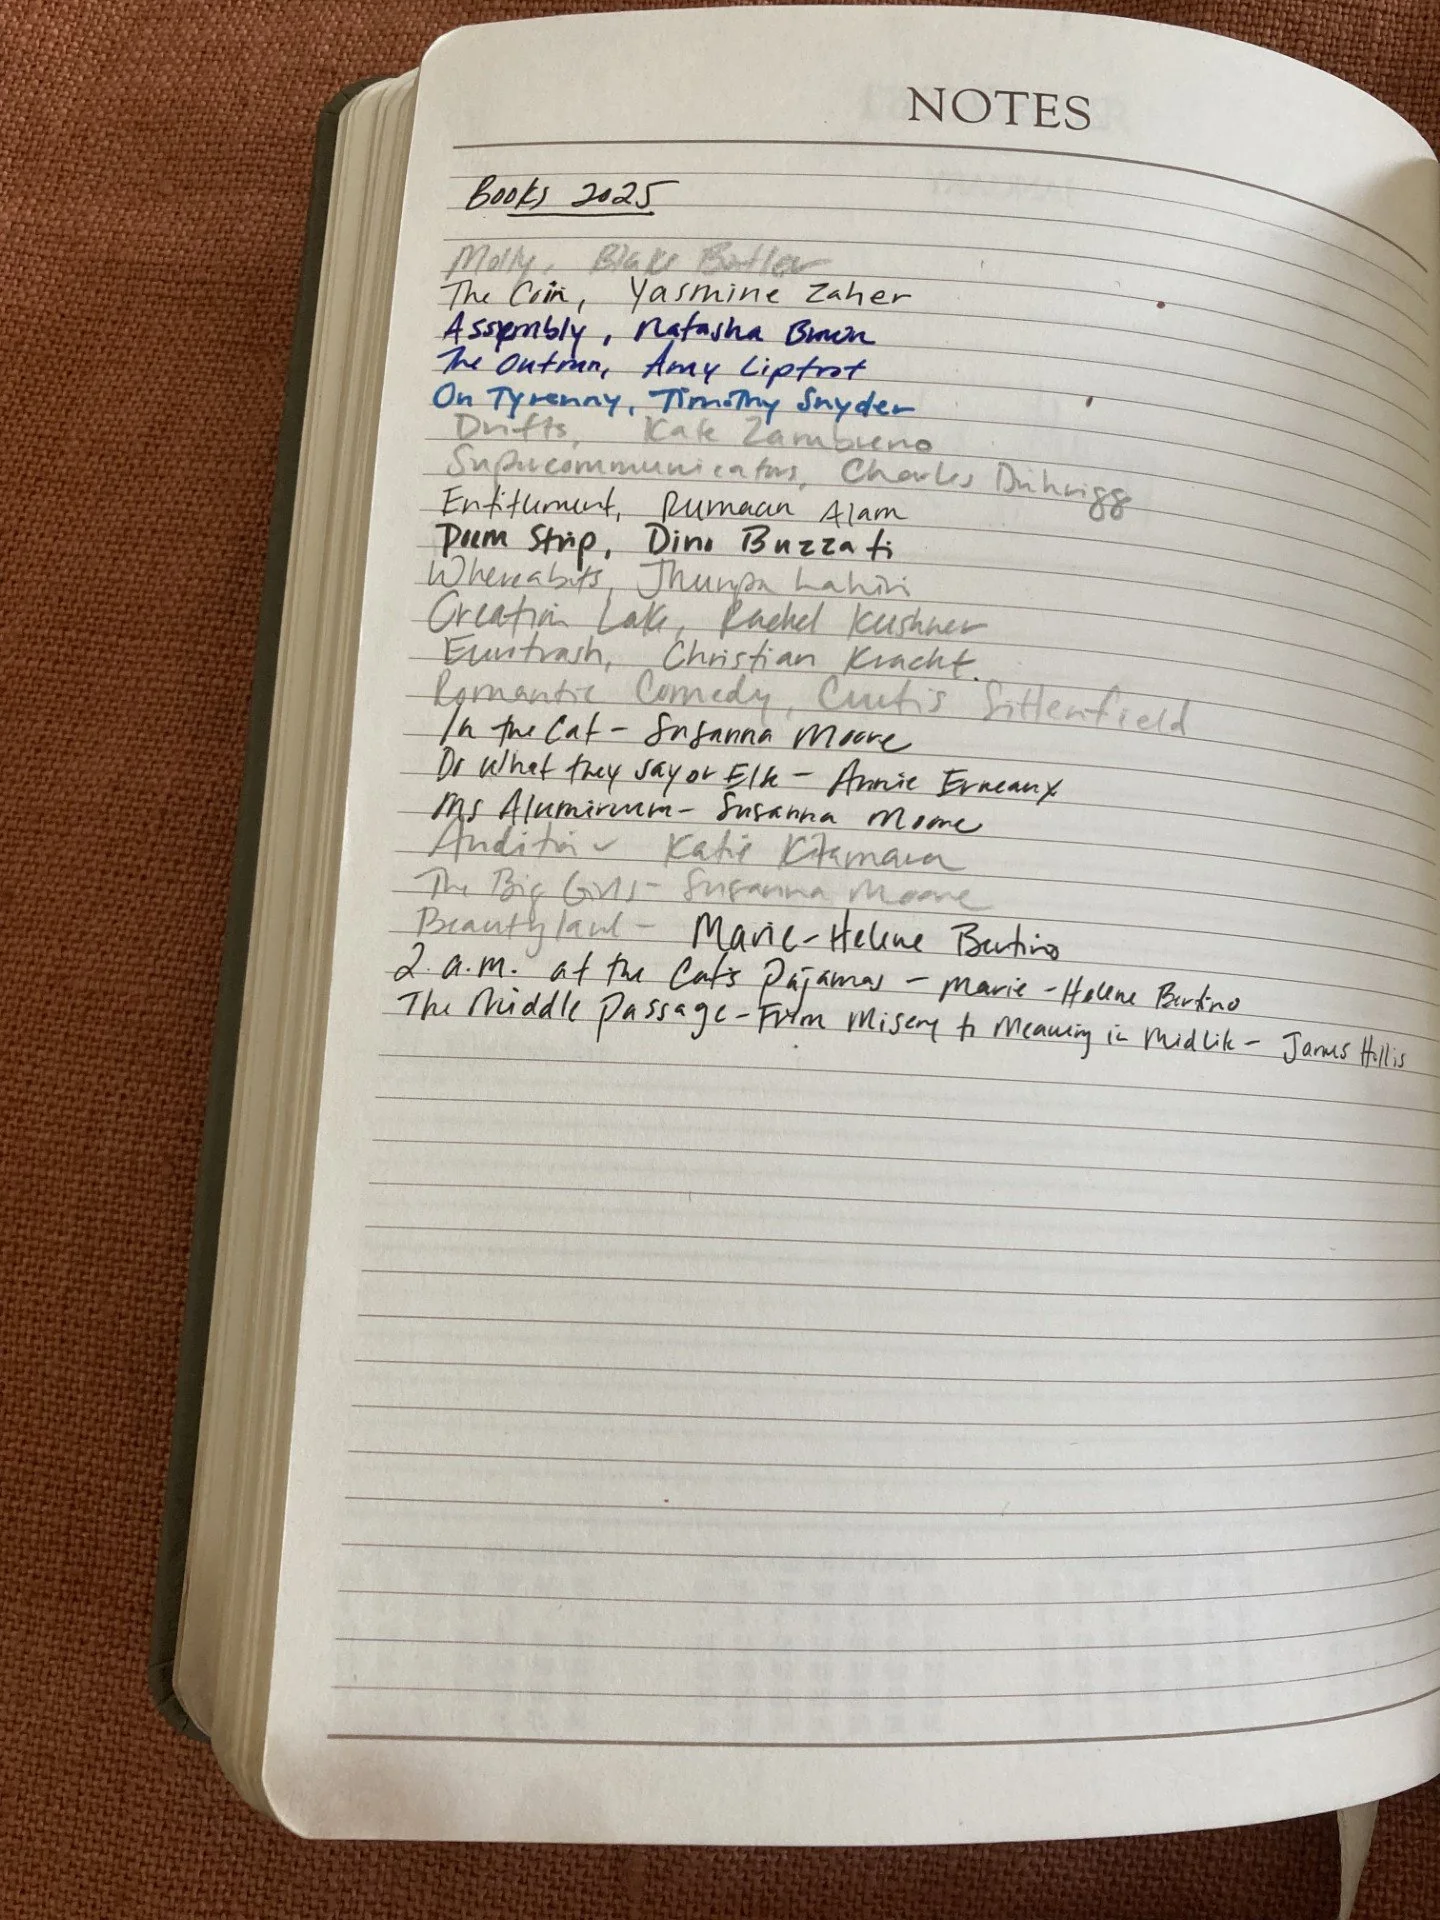 NOTES
Books 2025
Molly, Blake Butler
The Coin, Yasmine Zaher
Assembly, Natasha Brown
The Outrun, Amy Liptrot
On Tyrenny, Timothy Snyder
Drifts, Kate Zambreno
Supercommunicators, Charles Duhrigg
Entitlement, Rumaan Alam
Poem Strip, Dino Buzzati
Whereabouts, Jhumpa Lahiri
Creation Lake, Rachel Kushner
Eurotrash, Christian Kracht.
Romantic Comedy, Curtis Sittenfield
In the Cat - Susanna Moore
Do What they say or Elk - Annie Erneaux
Ms Aluminum - Susanna Moore
Audition Katie Kitamura
The Big Girls - Susanna Moore
Beautyland - Marie-Helene Bertino
2. a.m. at the Cat's Pajamas - Marie-Helene Bertino
The Middle Passage - From Misery to Meaning in Midlife - James Hollis